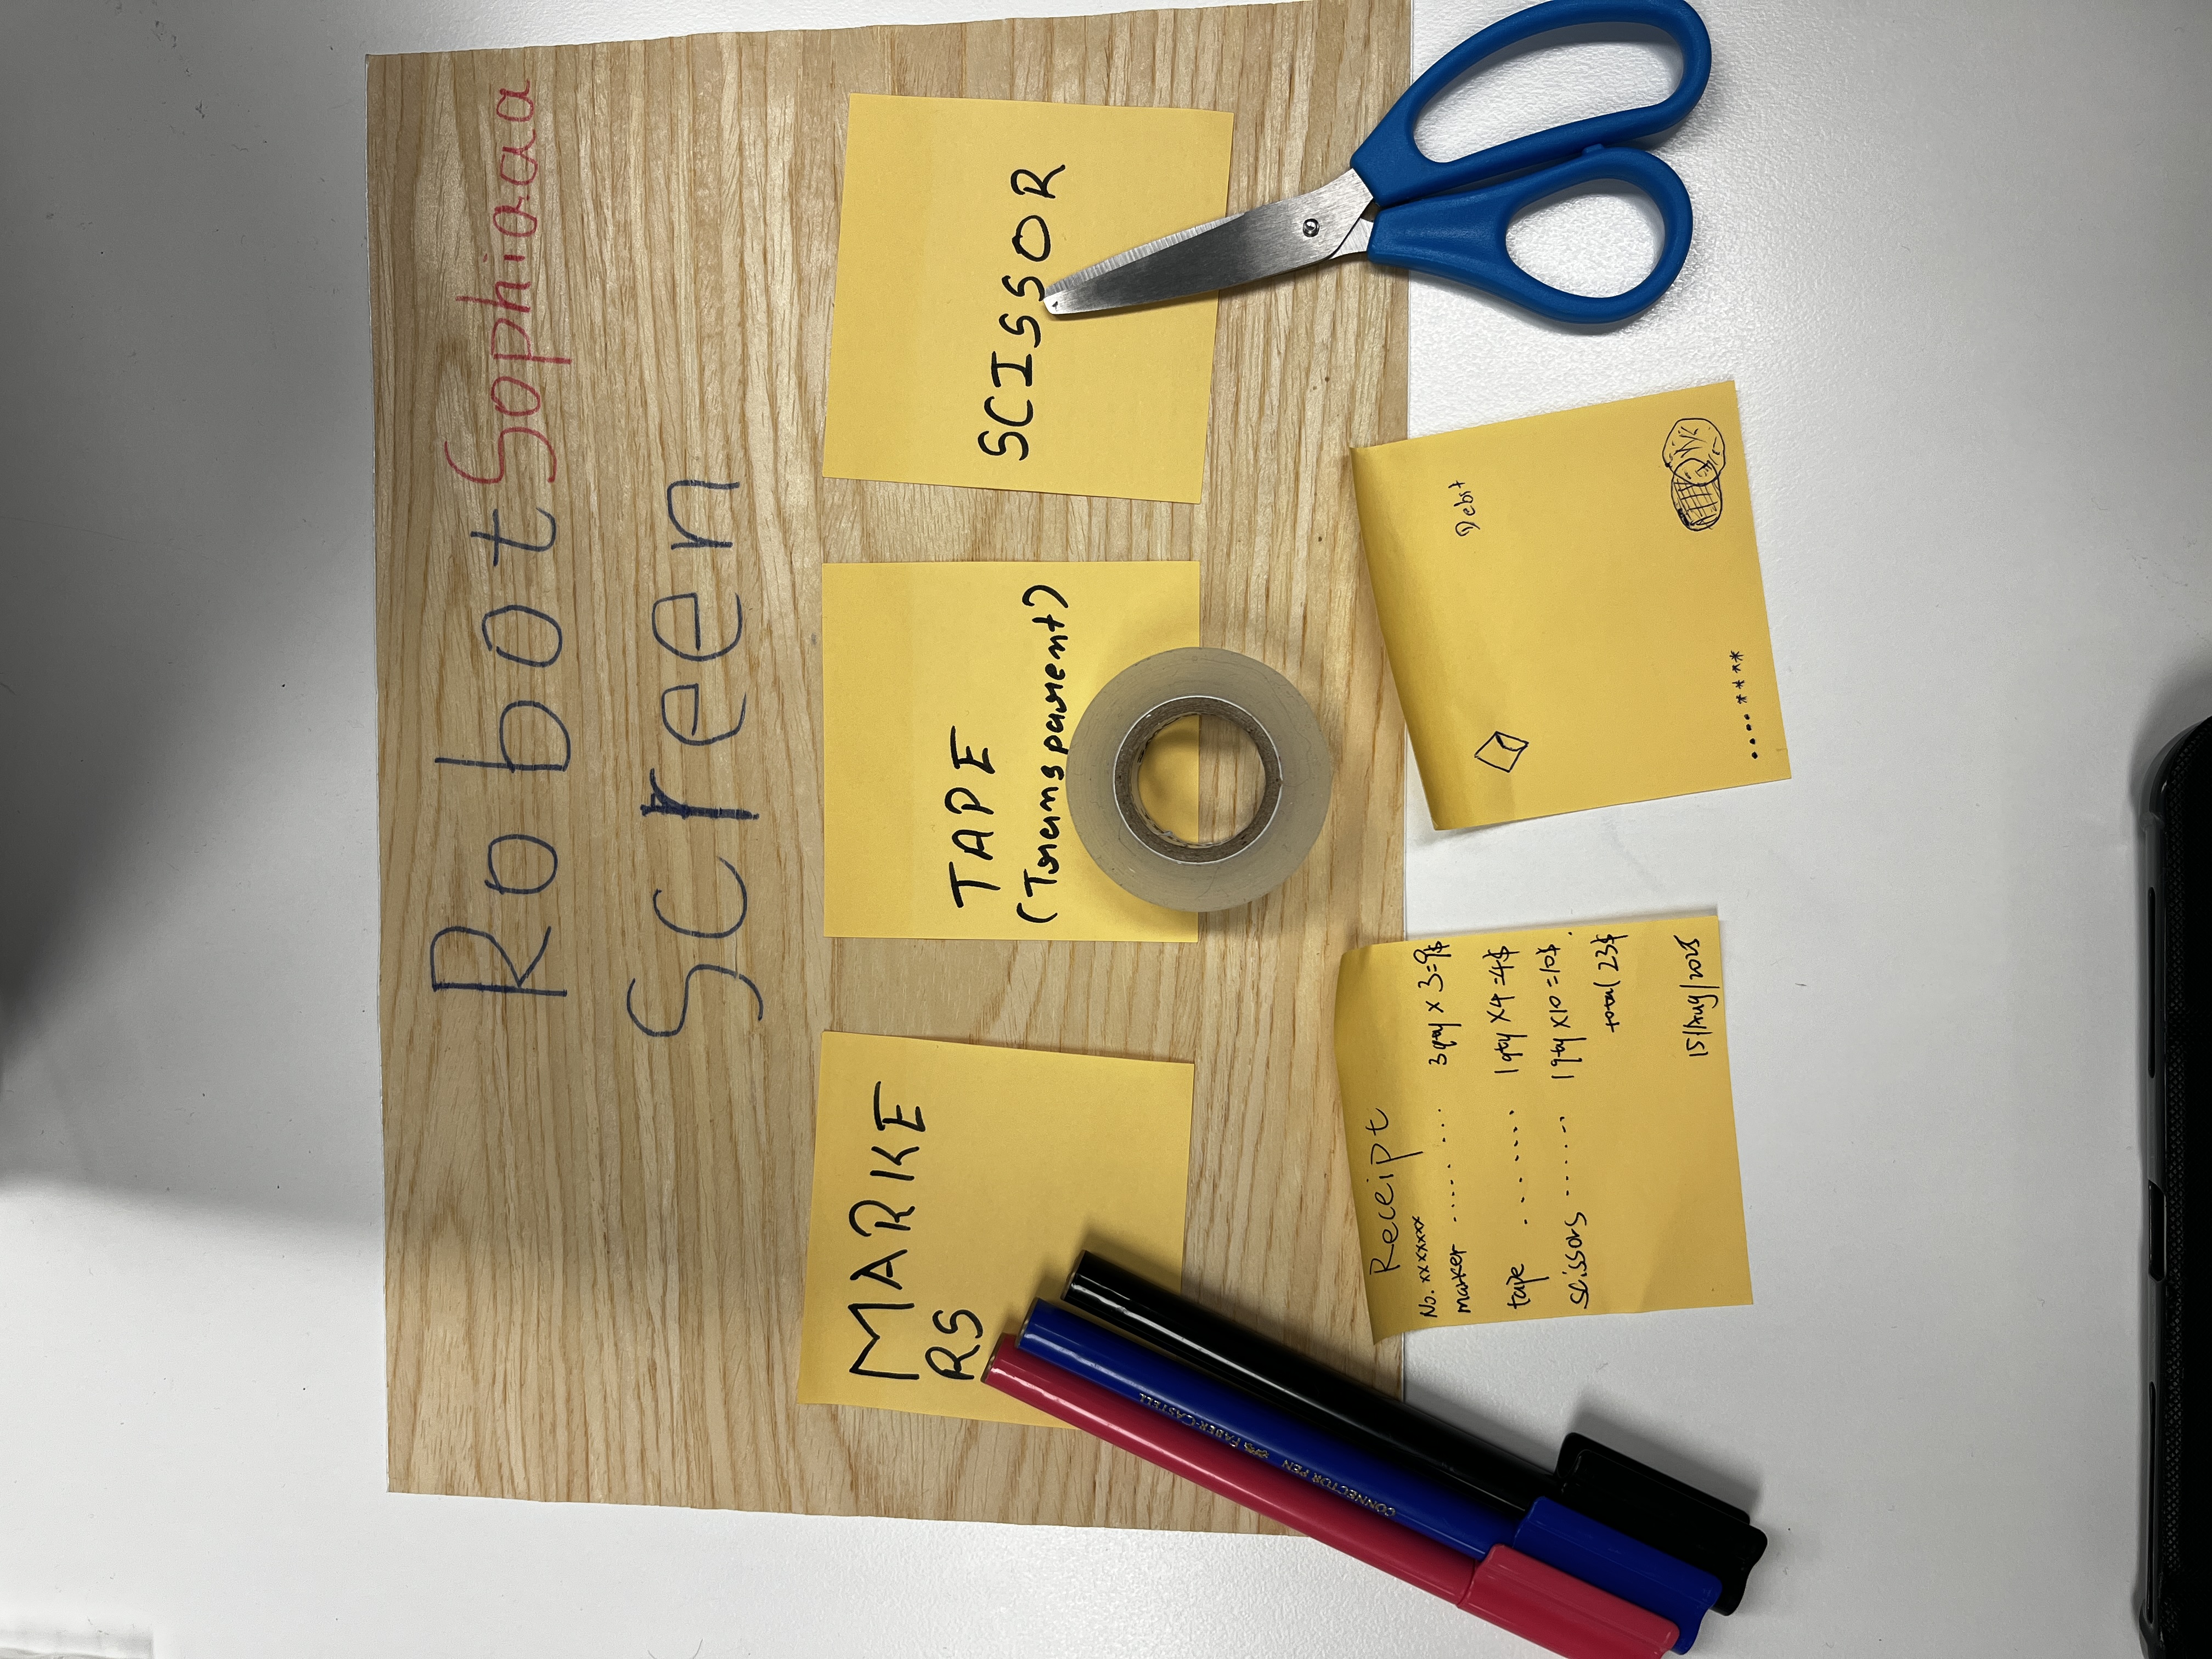 Robot Sophiaaa
Screen
MARKE
RS
TAPE
(Transparent)
SCISSOR
CONNECTOR PEN FABER-CASTELL
Receipt
No. xxxxxxx
marker ........ 3 qty x 3=9$
tape ....... 1 qty x4=4$
scissors ...... 1 qty x10=10$
total 23$
15/Aug/2025
Debit
....****